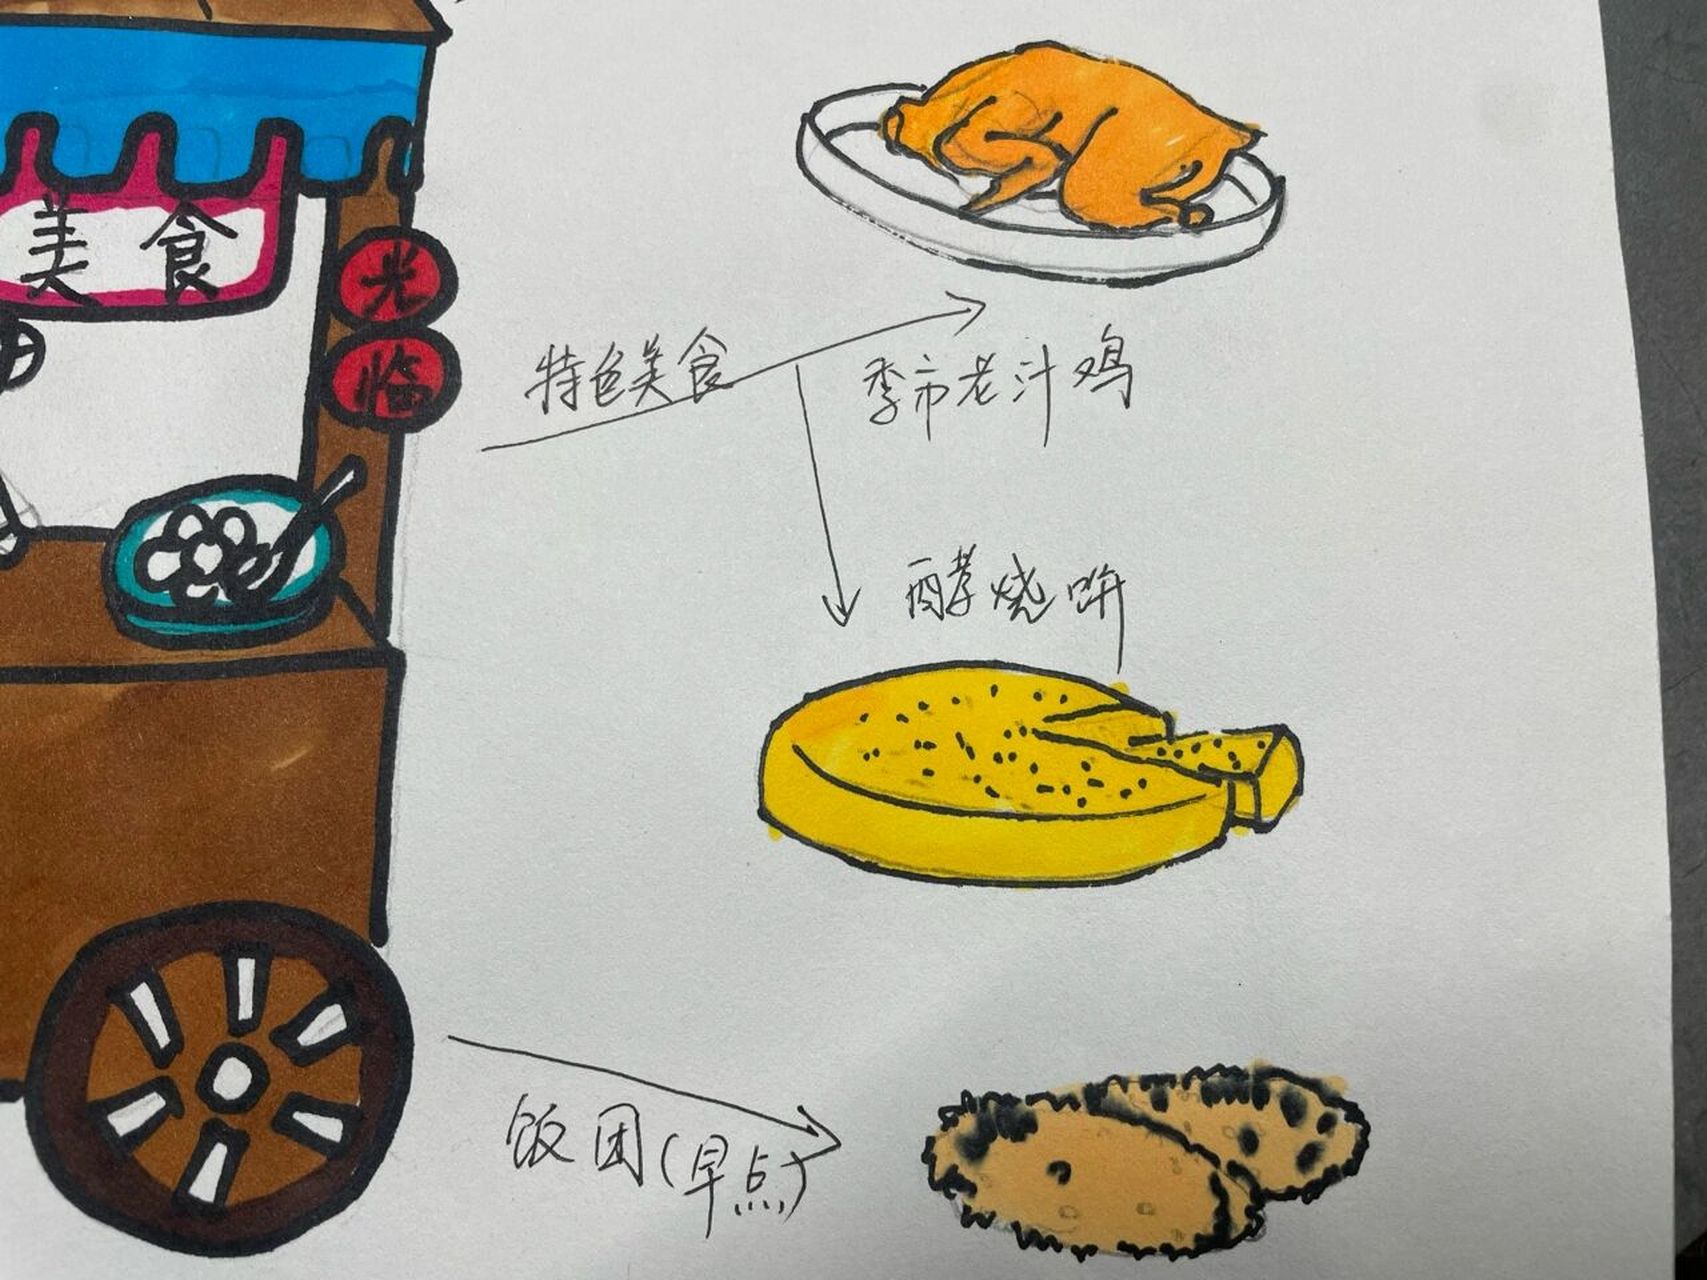 美食
光
临
特色美食
季市老汁鸡
酵烧饼
饭团(早点)